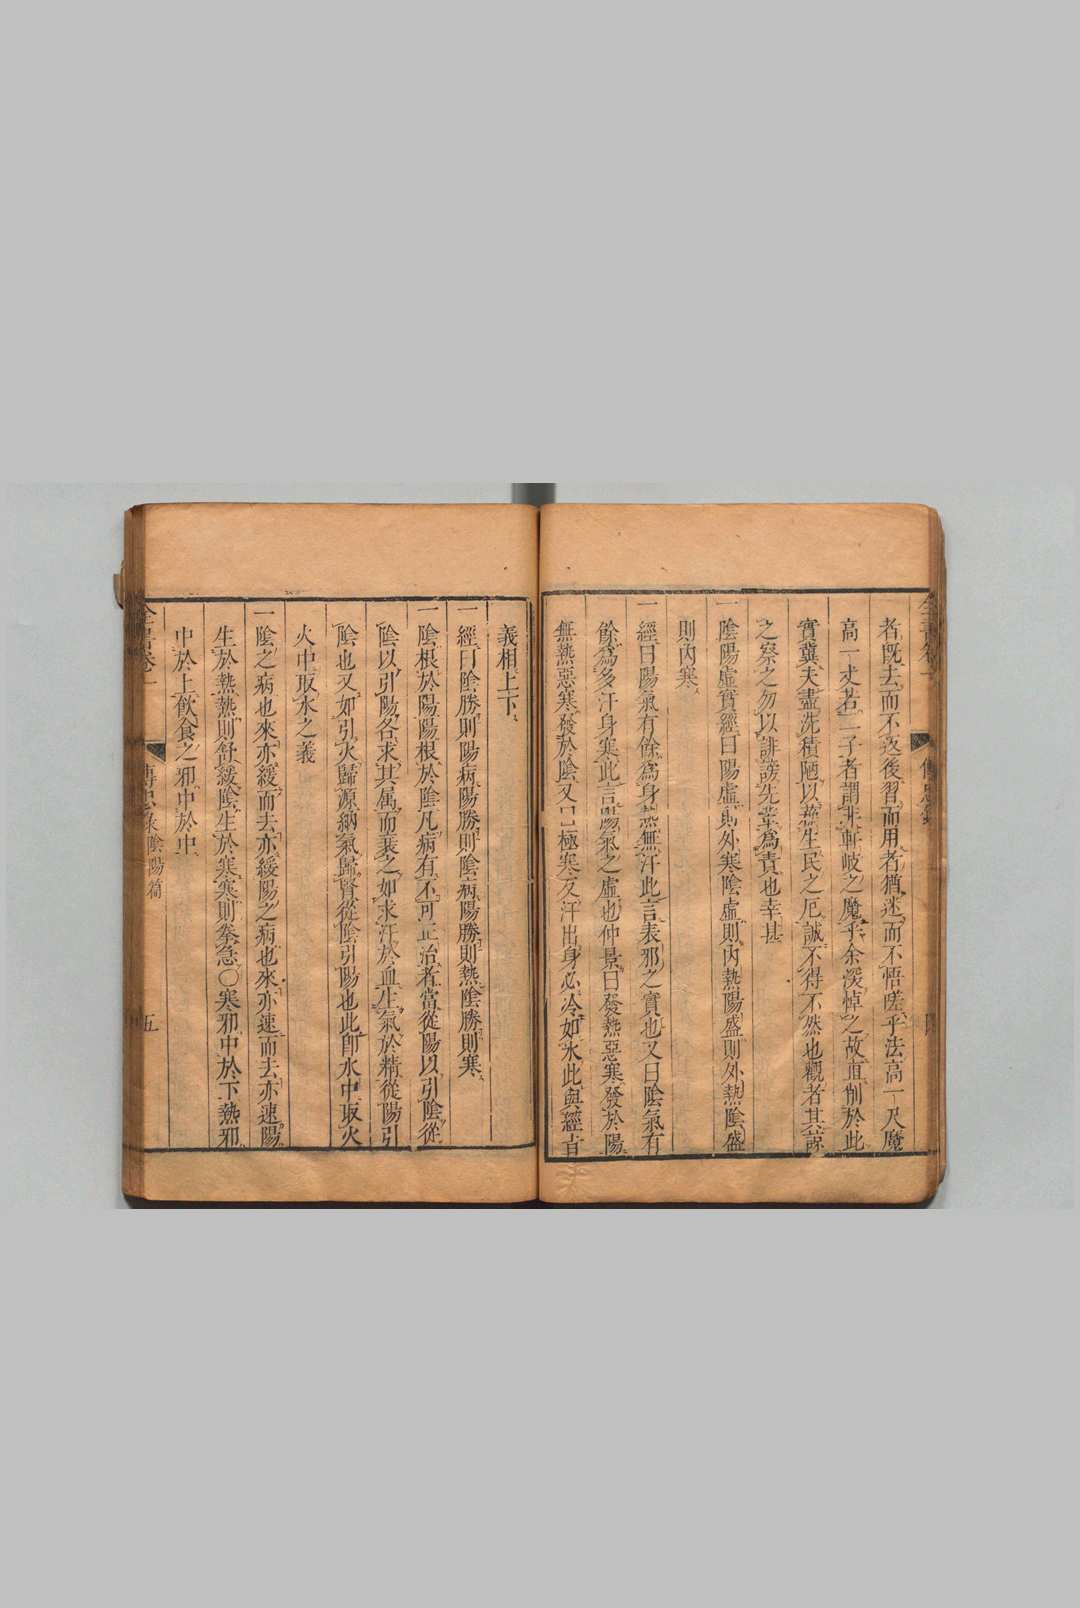 者既去而不返後習而用者猶迷而不悟嗟乎法高一尺魔
高一丈若二子者謂非軒岐之魔乎余深悼之故直削於此
實冀夫盡洗積陋以蘇生民之厄誠不得不然也觀者其諒
之察之勿以誹謗先輩為責也幸甚
一陰陽虛實經曰陽虛則外寒陰虛則內熱陽盛則外熱陰盛
則內寒
一經曰陽氣有餘為身熱無汗此言表邪之實也又曰陰氣有
餘為多汗身寒此言陽氣之虛也仲景曰發熱惡寒發於陽
無熱惡寒發於陰又曰極寒反汗出身必冷如氷此與經旨
義相上下
一經曰陰勝則陽病陽勝則陰病陽勝則熱陰勝則寒
一陰根於陽陽根於陰凡病有不可正治者當從陽以引陰從
陰以引陽各求其属而衰之如求汗於血生氣於精從陽引
陰也又如引火歸源納氣歸腎從陰引陽也此即水中取火
火中取水之義
一陰之病也來亦緩而去亦緩陽之病也來亦速而去亦速陽
生於熱熱則舒緩陰生於寒寒則拳急〇寒邪中於下熱邪
中於上飲食之邪中於中
全書卷一 傳忠錄陰陽篇 五